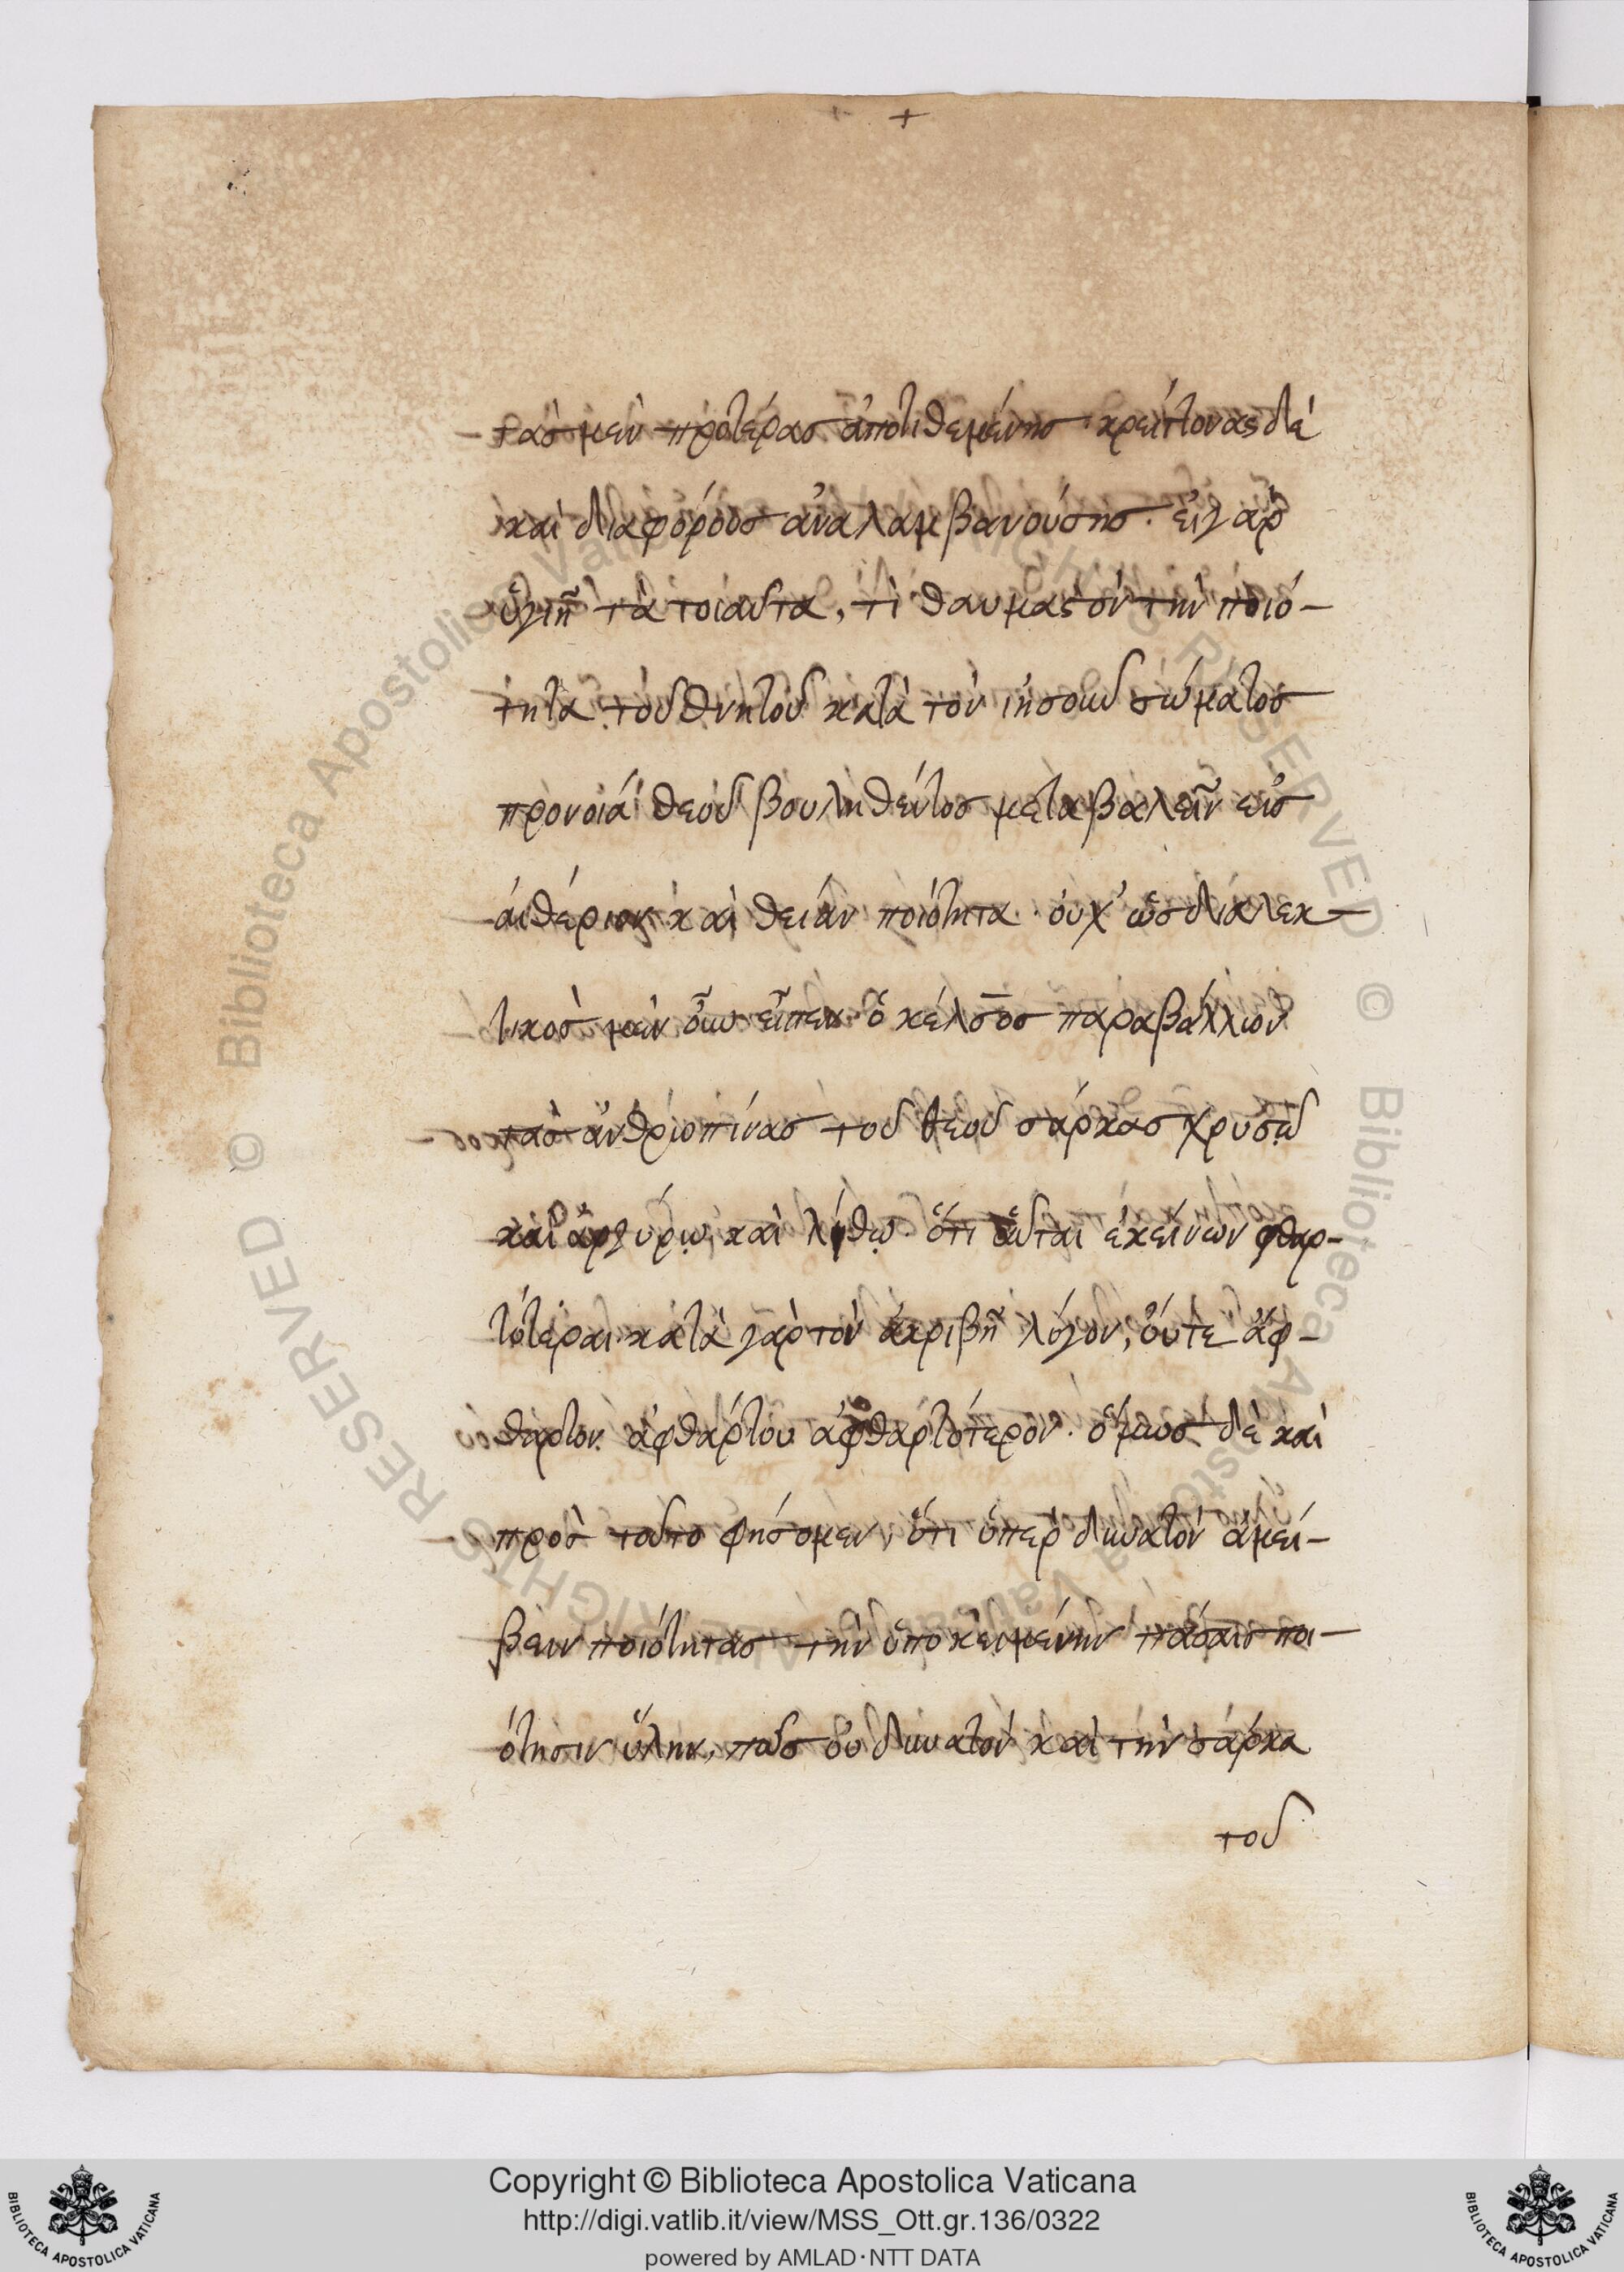 +
τὰς μὲν προτέρας ἀποτιθεμένης κρείττονας δὲ
καὶ διαφόρους ἀναλαμβανούσης. εἰ γὰρ
ὑγιῆ τὰ τοιαῦτα, τί θαυμαστὸν τὴν ποιό-
τητα τοῦ θνητοῦ κατὰ τὸν ἰησοῦν σώματος
προνοία θεοῦ βουληθέντος μεταβαλεῖν εἰς
αἰθέριον καὶ θείαν ποιότητα. οὐχ' ὡς διαλεκ-
τικὸς μὲν οὖν εἶπεν ὁ κέλσος παραβάλλων
τὰς ἀνθρωπίνας τοῦ θεοῦ σάρκας χρυσῷ
καὶ ἀργύρῳ καὶ λίθῳ. ὅτι αὗται ἐκείνων φθαρ-
τότεραι. κατὰ γὰρ τὸν ἀκριβῆ λόγον, οὔτε ἄφ-
θαρτον ἀφθάρτου ἀφθαρτότερον. ὅμως δὲ καὶ
πρὸς τοῦτο φήσομεν, ὅτι ὑπὲρ δυνατὸν ἀμεί-
βειν ποιότητας τὴν ὑποκειμένην πάσαις ποι-
ότησιν ὕλην, πῶς οὐ δυνατὸν καὶ τὴν σάρκα
τοῦ
Copyright © Biblioteca Apostolica Vaticana
http://digi.vatlib.it/view/MSS_Ott.gr.136/0322
powered by AMLAD·NTT DATA
BIBLIOTECA APOSTOLICA VATICANA
BIBLIOTECA APOSTOLICA VATICANA
© Biblioteca Apostolica Vaticana ALL RIGHTS RESERVED